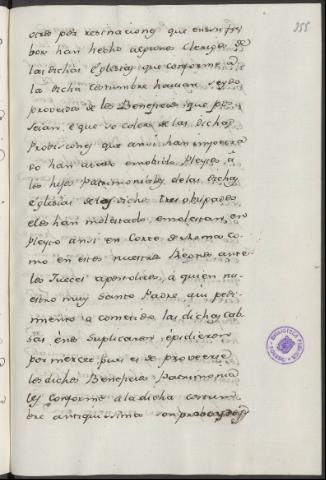 355
otros por resinaciones que en su fa
bor han hecho algunos Clerigos de
las dichas Eglesias que conforme a
la dicha costumbre hauian seydo
proveidos de los Beneficios que po
seian, e que so color de las dichas
Provisiones que ansi han impetra
do han movido Pleytos a
los hijos Patrimoniales de las dichas
Eglesias de los dichos tres obispados
e les han molestado, e molestan en
Pleyto ansi en Corte de Roma co
mo en estos nuestros Reynos ante
los Jueces apostolicos, a quien nu
estro muy Santo Padre a su pedi
mento a cometido las dichas cab
sas, e nos suplicaron, e pidieron
por merced, pues es de proveerse
los dichos Beneficios Patrimonia
les conforme a la dicha costum
bre antiquissima son
BIBLIOTECA